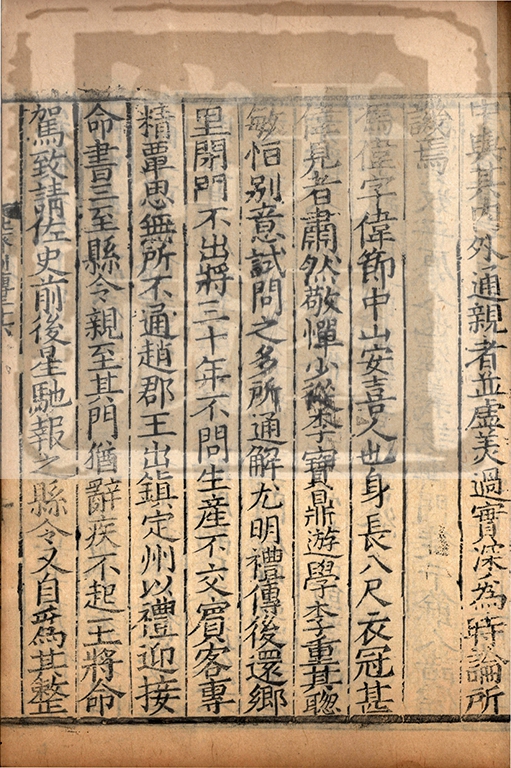 與其内外通親者並虛美過實深為時論所
譏焉
馮偉字偉節中山安喜人也身長八尺衣冠甚
偉見者肅然敬憚少從李寶鼎遊學李重其聦
敏恒别意試問之多所通解尤明禮傳後還鄉
里閉門不出將三十年不問生産不交賔客專
精覃思無所不通趙郡王出鎮定州以禮迎接
命書三至縣令親至其門猶辭疾不起王將命
駕致請佐史前後星馳報之縣令又自爲其整